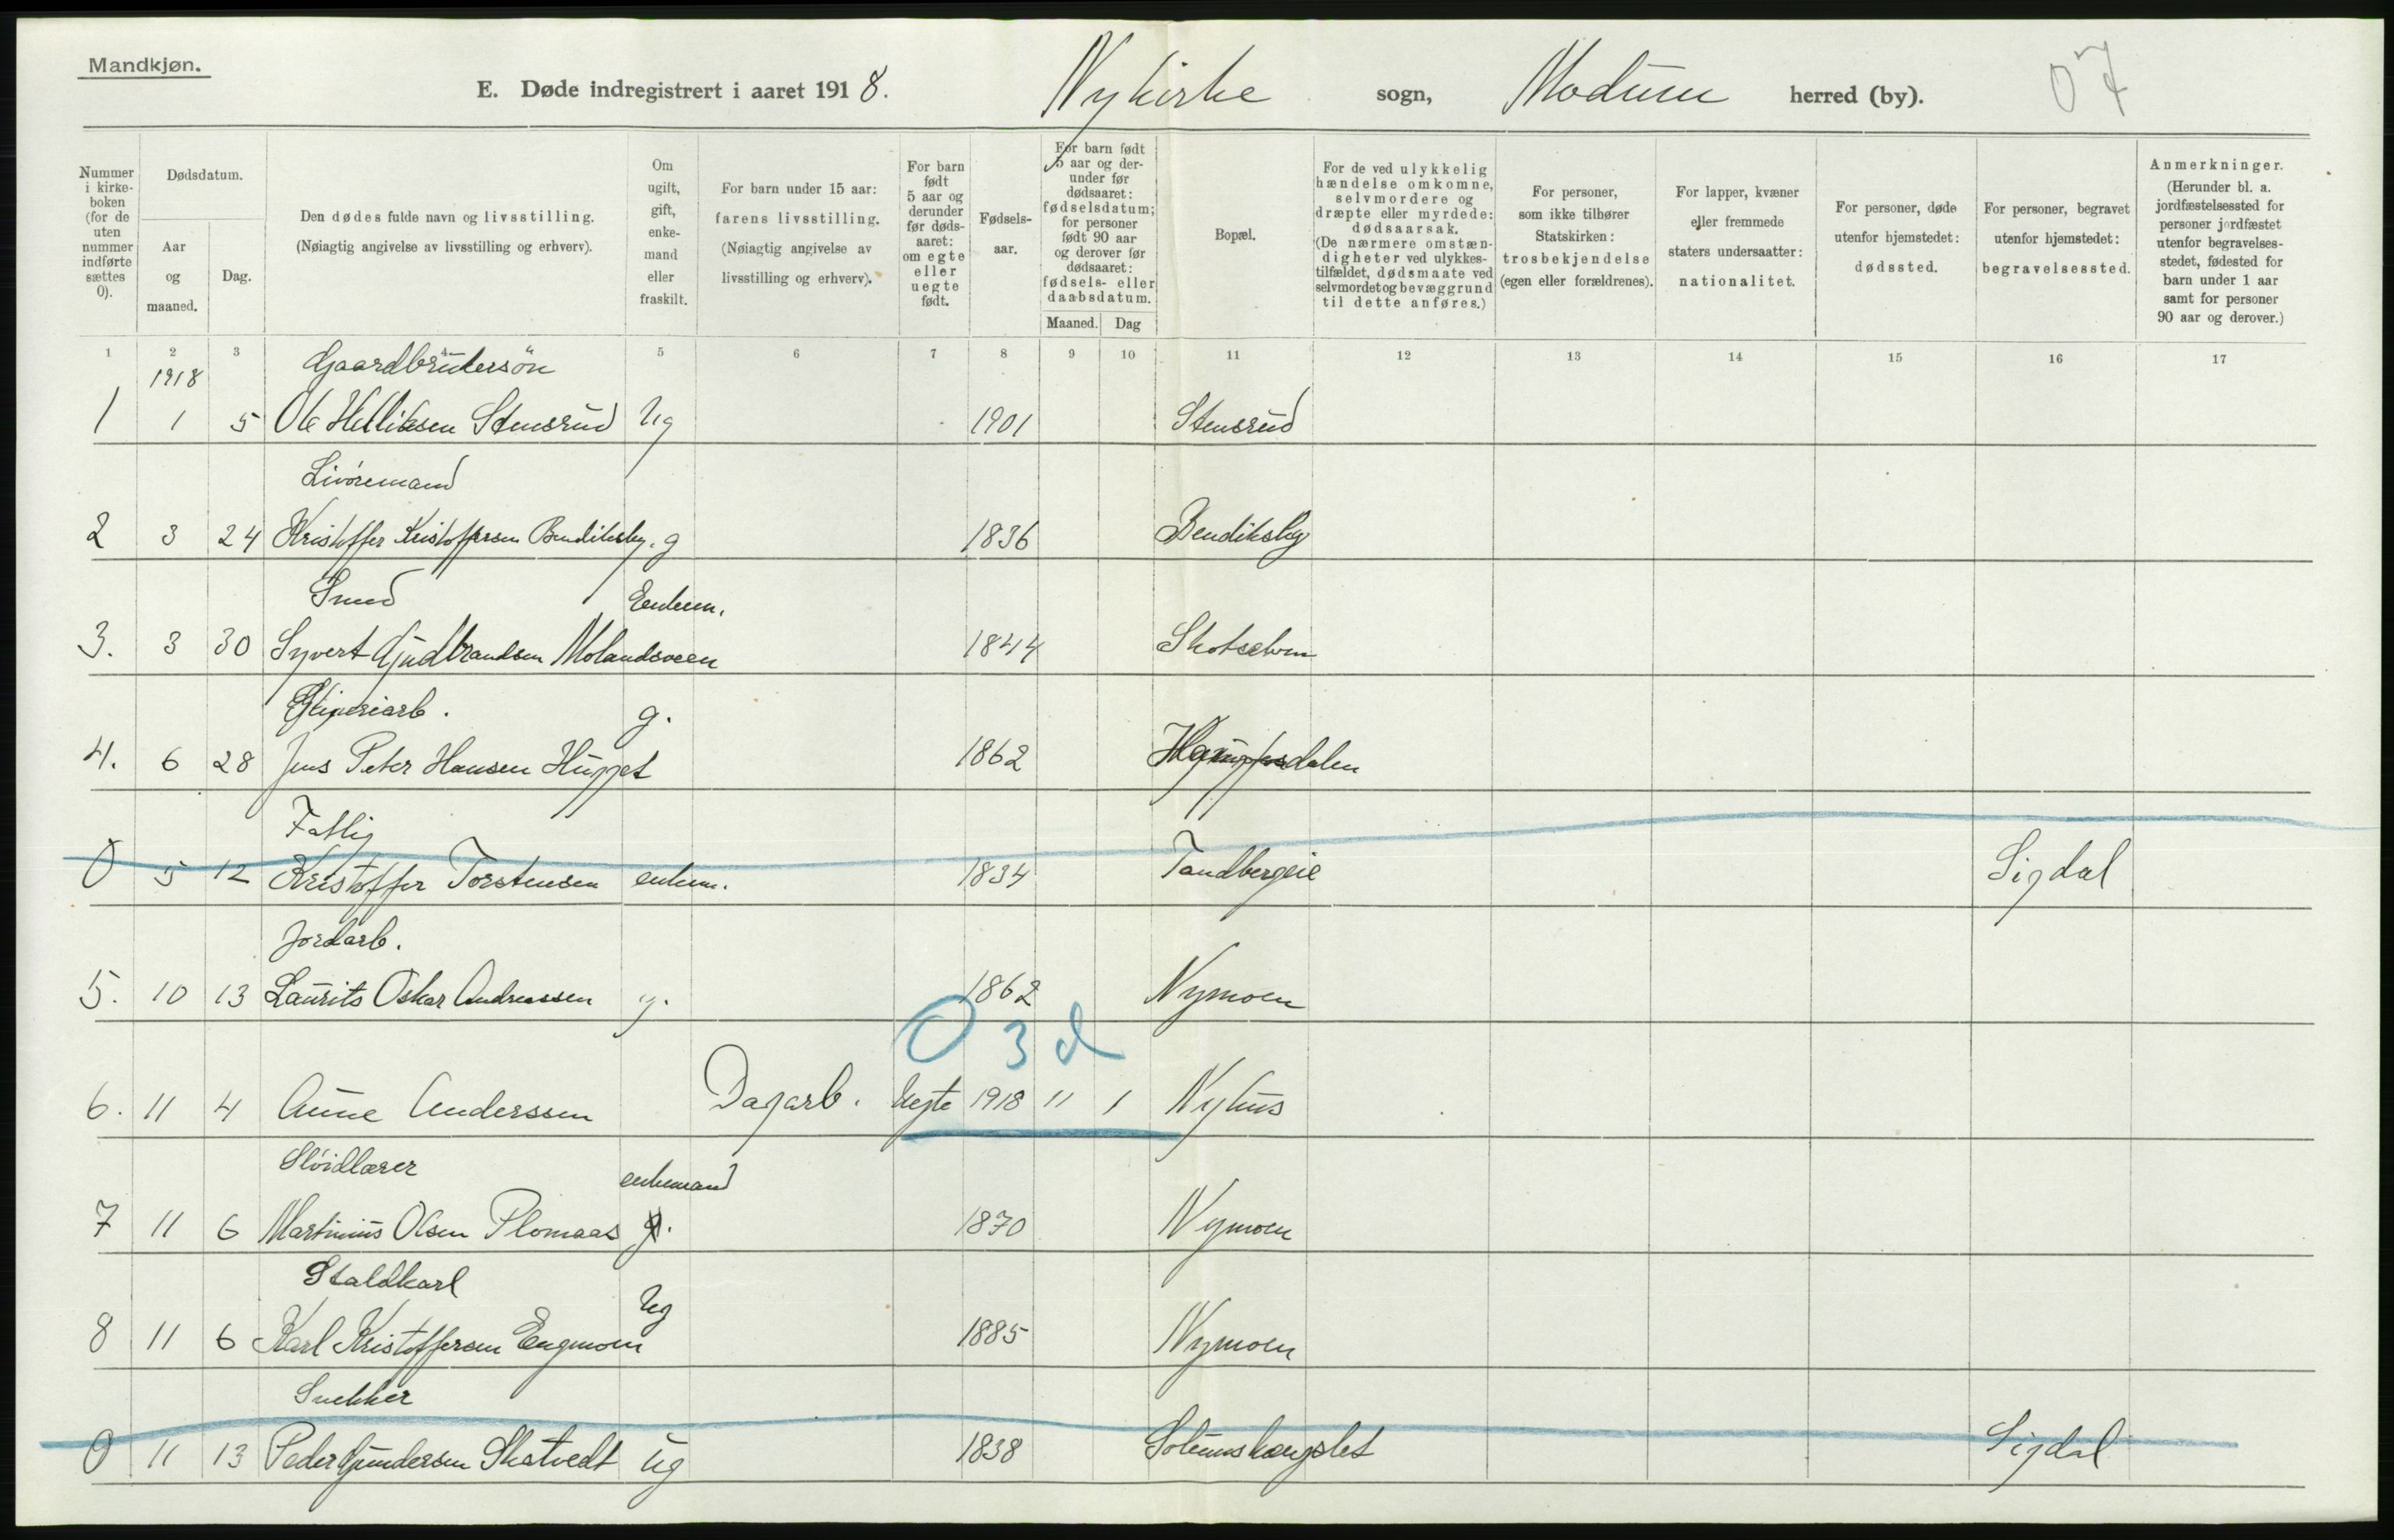 Mandkjøn.
E. Døde indregistrert i aaret 1918. Nykirke sogn, Modum herred (by). 07
Nummer i kirke-boken (for de uten nummer indførte sættes 0).
Dødsdatum.
Aar og maaned.
Dag.
Den dødes fulde navn og livsstilling. (Nøiagtig angivelse av livsstilling og erhverv).
Om ugift, gift, enke-mand eller fraskilt.
For barn under 15 aar: farens livsstilling. (Nøiagtig angivelse av livsstilling og erhverv).
For barn født 5 aar og derunder før døds-aaret: om egte eller uegte født.
Fødsels-aar.
For barn født 5 aar og der-under før dødsaaret: fødselsdatum; for personer født 90 aar og derover før dødsaaret: fødsels- eller daabsdatum.
Maaned. Dag
Bopæl.
For de ved ulykkelig hændelse omkomne, selvmordere og dræpte eller myrdede: dødsaarsak. (De nærmere omstæn-digheter ved ulykkes-tilfældet, dødsmaate ved selvmordet og bevæggrund til dette anføres.)
For personer, som ikke tilhører Statskirken: trosbekjendelse (egen eller forældrenes).
For lapper, kvæner eller fremmede staters undersaatter: nationalitet.
For personer, døde utenfor hjemstedet: dødssted.
For personer, begravet utenfor hjemstedet: begravelsessted.
Anmerkninger. (Herunder bl. a. jordfæstelsessted for personer jordfæstet utenfor begravelses-stedet, fødested for barn under 1 aar samt for personer 90 aar og derover.)
1 2 3 5 6 7 8 9 10 11 12 13 14 15 16 17
1918 Gaardbrukersøn
1 1 5 Ole Helliksen Stensrud Ug 1901 Stensrud
Livøremand
2 3 24 Kristoffer Kristoffersen Bendiksby. g 1836 Bendiksby
Smed Enkem.
3. 3 30 Syvert Gudbrandsen Molandsveen 1844 Skotselven
Sliperiarb. g.
4. 6 28 Jens Peter Hansen Hugget 1862
Fattig
0 5 12 Kristoffer Torstensen enkem. 1834 Tandbergeie Sigdal
Jordarb.
5. 10 13 Laurits Oskar Andreassen g. 1862 Nymoen
0 3 d
6. 11 4 Anne Anderssen Dagarb. Uegte 1918 11 1 Nyhus
Sløidlærer enkemand
7 11 6 Martinius Olsen Plomaas g. 1870 Nymoen
Staldkarl Ug
8 11 6 Karl Kristoffersen Engmoen 1885 Nymoen
Snekker
0 11 13 Peder Gundersen Skatvedt ug 1838 Sigdal